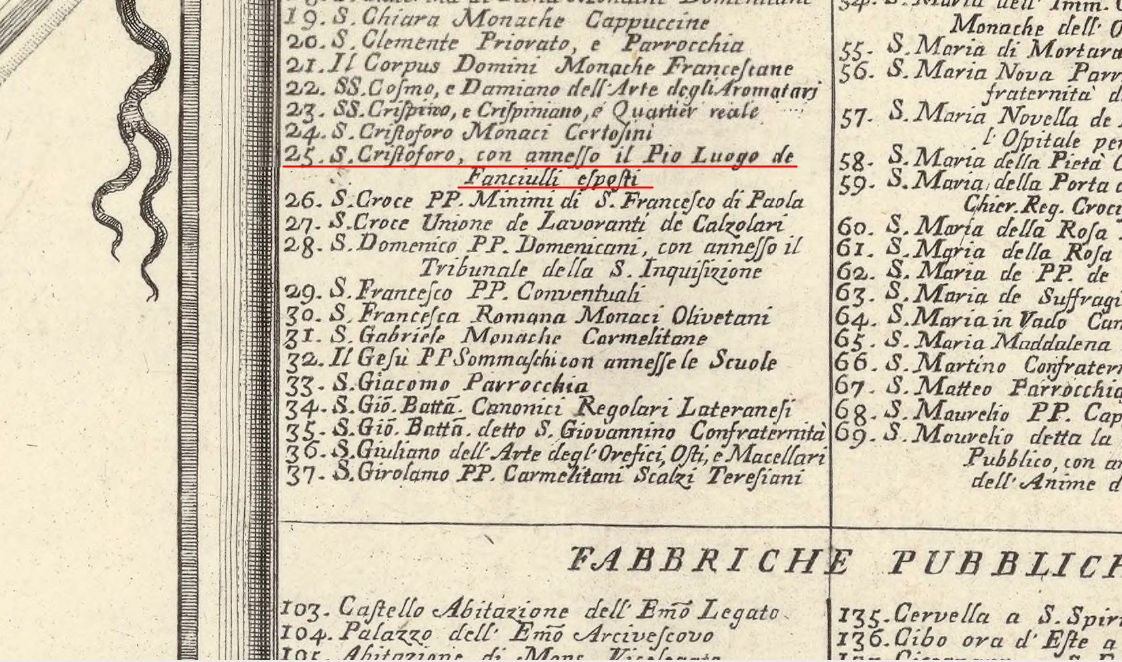 19. S. Chiara Monache Cappuccine
20. S. Clemente Priorato, e Parrocchia
21. Il Corpus Domini Monache Franceſcane
22. SS. Coſmo, e Damiano dell'Arte degli Aromatari
23. SS. Criſpino, e Criſpiniano, e Quartier reale
24. S. Criſtoforo Monaci Certoſini
25. S. Criſtoforo, con anneſſo il Pio Luogo de
Fanciulli eſpoſti
26. S. Croce PP. Minimi di S. Franceſco di Paola
27. S. Croce Unione de Lavoranti de Calzolari
28. S. Domenico PP. Domenicani, con anneſſo il
Tribunale della S. Inquiſizione
29. S. Franceſco PP. Conventuali
30. S. Franceſca Romana Monaci Olivetani
31. S. Gabriele Monache Carmelitane
32. Il Geſù PP Sommaſchi con anneſſe le Scuole
33. S. Giacomo Parrocchia
34. S. Gio. Battā. Canonici Regolari Lateraneſi
35. S. Gio. Battā. detto S. Giovannino Confraternità
36. S. Giuliano dell'Arte degl'Orefici, Oſti, e Macellari
37. S. Girolamo PP. Carmelitani Scalzi Tereſiani
54. S. Maria dell' Imm.
Monache dell'
55. S. Maria di Mortara
56. S. Maria Nova
fraternità
57. S. Maria Novella de
l'Oſpitale
58. S. Maria della Pietà
59. S. Maria della Porta
Chier. Reg.
60. S. Maria della Roſa
61. S. Maria della Roſa
62. S. Maria de PP. de
63. S. Maria de
64. S. Maria in Vado
65. S. Maria Maddalena
66. S. Martino
67. S. Matteo Parrocchia
68. S. Maurelio PP.
69. S. Maurelio detta la
Pubblico, con
dell'Anime
FABBRICHE
103. Caſtello Abitazione dell' Emō Legato
104. Palazzo dell' Emō Arciveſcovo
105. Abitazione di Mons. Vicelegato
135. Cervella a S.
136. Cibo ora d'Eſte a